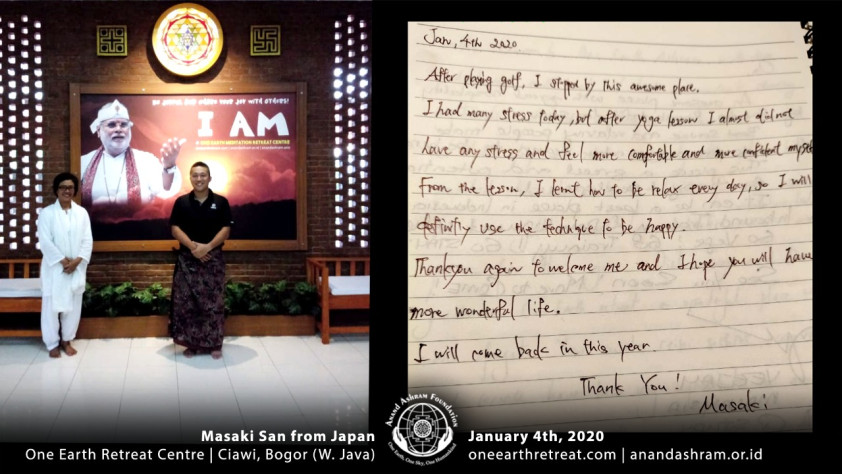 BE JOYFUL AND SHARE YOUR JOY WITH OTHERS!
I AM
@ ONE EARTH MEDITATION RETREAT CENTRE
Jan, 4th 2020
After playing golf, I stopped by this awesome place.
I had many stress today, but after yoga lesson I almost did not
have any stress and feel more comfortable and more confident myself
From the lesson, I learnt how to be relax every day, so I will
definitly use the technique to be happy.
Thankyou again to welcome me and I hope you will have
more wonderful life.
I will come back in this year.
Thank You!
Masaki
Anand Ashram Foundation
One Earth, One Sky, One Humankind
Masaki San from Japan
One Earth Retreat Centre | Ciawi, Bogor (W. Java)
January 4th, 2020
oneearthretreat.com | anandashram.or.id